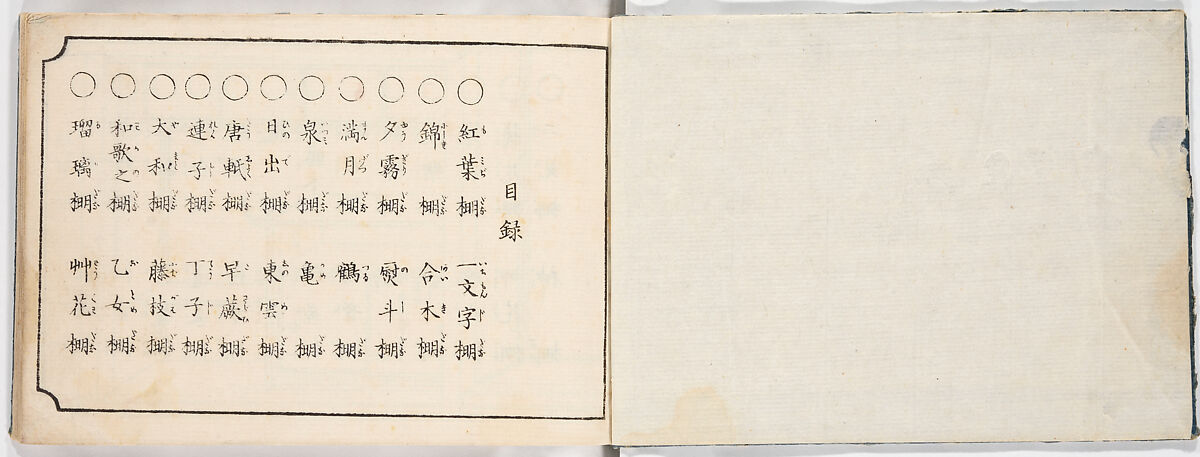 目録
○紅葉棚 一文字棚
○錦棚 合木棚
○夕霧棚 熨斗棚
○満月棚 鶴棚
○泉棚 亀棚
○日出棚 東雲棚
○唐軾棚 早蕨棚
○連子棚 丁子棚
○大和棚 藤枝棚
○和歌之棚 乙女棚
○瑠璃棚 艸花棚